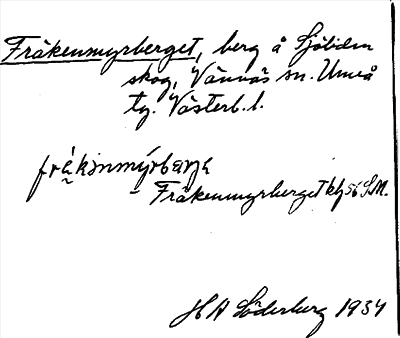 Fräkenmyrberget, berg å Sjöliden
skog, Vännäs sn. Umeå
tg. Västerb. l.
fräkinmýrbærje
Fräkenmyrberget kh 56 S.M.
H A Söderberg 1934